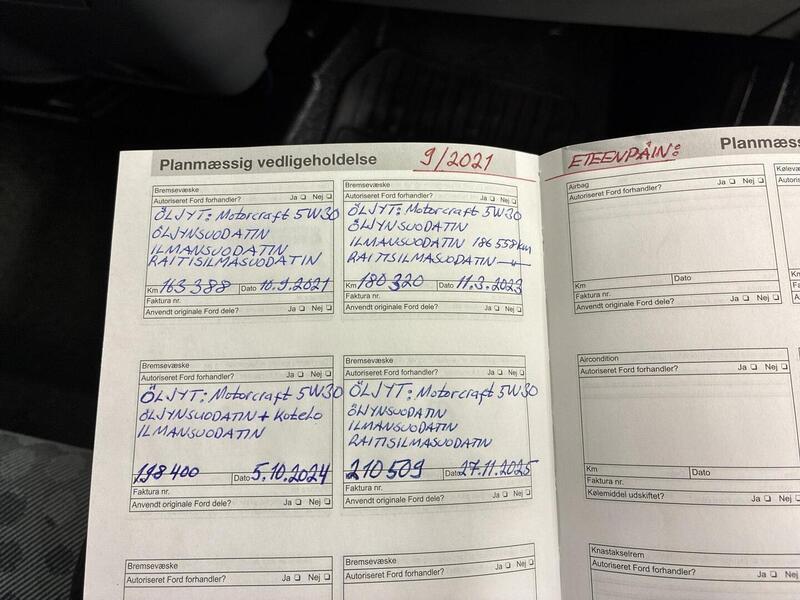 Planmæssig vedligeholdelse 9/2021
Bremsevæske
Autoriseret Ford forhandler? Ja Nej
ÖLJYT: Motorcraft 5W30
ÖLJYNSUODATIN
ILMANSUODATIN
RAITISILMASUODATIN
Km 163 388 Dato 10.9.2021
Faktura nr.
Anvendt originale Ford dele? Ja Nej
Bremsevæske
Autoriseret Ford forhandler? Ja Nej
ÖLJYT: Motorcraft 5W30
ÖLJYNSUODATIN
ILMANSUODATIN 186 558 km
RAITISILMASUODATIN
Km 180 320 Dato 11.3.2023
Faktura nr.
Anvendt originale Ford dele? Ja Nej
Bremsevæske
Autoriseret Ford forhandler? Ja Nej
ÖLJYT: Motorcraft 5W30
ÖLJYNSUODATIN + Kotelo
ILMANSUODATIN
198 400 Dato 5.10.2024
Faktura nr.
Anvendt originale Ford dele? Ja Nej
Bremsevæske
Autoriseret Ford forhandler? Ja Nej
ÖLJYT: Motorcraft 5W30
ÖLJYNSUODATIN
ILMANSUODATIN
RAITISILMASUODATIN
210 509 Dato 27.11.2025
Faktura nr.
Anvendt originale Ford dele? Ja Nej
Bremsevæske
Autoriseret Ford forhandler? Ja Nej
Bremsevæske
Autoriseret Ford forhandler? Ja Nej
ETEENPÄIN:
Airbag
Autoriseret Ford forhandler? Ja Nej
Km Dato
Faktura nr.
Anvendt originale Ford dele? Ja Nej
Aircondition
Autoriseret Ford forhandler? Ja Nej
Km Dato
Faktura nr.
Kølemiddel udskiftet? Ja Nej
Knastakselrem
Autoriseret Ford forhandler? Ja Nej